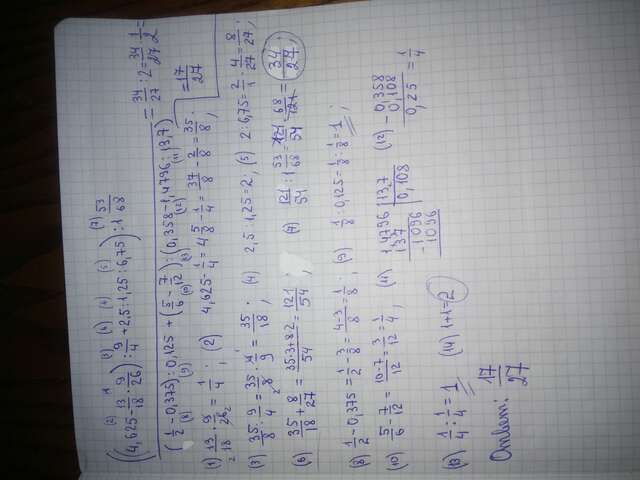 ((4,625 - 13/18 · 9/26) : 9/4 + 2,5 · 1,25 : 6,75) : 1 53/68
(1/2 - 0,375) : 0,125 + (5/6 - 7/12) : (0,358 - 1,4796 : 13,7)
= 34/27 : 2 = 34/27 · 1/2 =
= 17/27
(1) 13/18 · 9/26 = 1/4 ; (2) 4,625 - 1/4 = 4 5/8 - 1/4 = 37/8 - 2/8 = 35/8 ;
(3) 35/8 : 9/4 = 35/8 · 4/9 = 35/18 ; (4) 2,5 : 1,25 = 2 ; (5) 2 : 6,75 = 2/1 · 4/27 = 8/27 ;
(6) 35/18 + 8/27 = 35·3+8·2/54 = 121/54 ; (7) 121/54 : 1 53/68 = 121/54 · 68/121 = 34/27 ;
(8) 1/2 - 0,375 = 1/2 - 3/8 = 4-3/8 = 1/8 ; (9) 1/8 : 0,125 = 1/8 : 1/8 = 1 ;
(10) 5/6 - 7/12 = 10-7/12 = 3/12 = 1/4 ; (11) 1,4796 | 13,7
137 | 0,108
- 1096
1096
(12) - 0,358
0,108
0,25 = 1/4
(13) 1/4 : 1/4 = 1 (14) 1+1=2
Ответ: 17/27